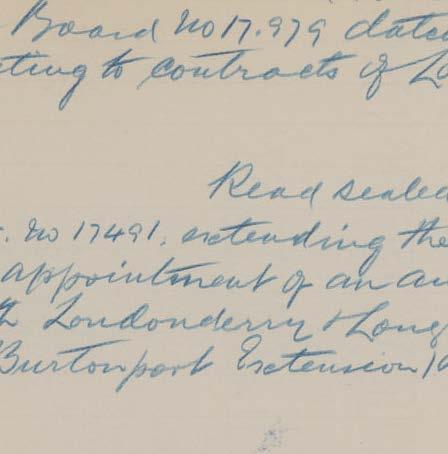 Board No 17.979 dated
ting to contracts of Lo
Read sealed
. No 17491, extending the
appointment of an au
Londonderry & Loug
Burtonport Extension